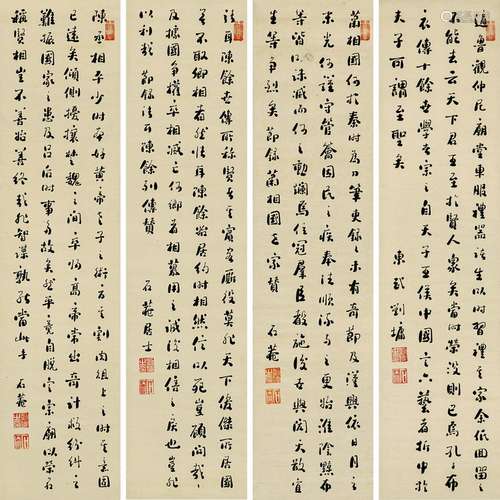 適魯觀仲尼廟堂車服禮器諸生以時習禮其家余低回留之
不能去云天下君王至於賢人衆矣當時則榮沒則已焉孔子布
衣傳十餘世學者宗之自天子王侯中國言六藝者折中於
夫子可謂至聖矣
東武劉墉
蕭相國何於秦時爲刀筆吏錄錄未有奇節及漢興依日月之
末光何謹守管籥因民之疾奉法順流與之更始淮陰黥布
等皆以誅滅而何之勳爛焉位冠羣臣聲施後世與閎夭散宜
生等爭烈矣 節錄蕭相國世家贊
石菴
張耳陳餘世傳所稱賢者其賓客廝役莫非天下俊傑所居國
無不取卿相者然張耳陳餘始居約時相然信以死豈顧問哉
及據國爭權卒相滅亡何鄉者相慕用之誠後相倍之戾也豈非
以利哉 節錄張耳陳餘列傳贊
石菴居士
陳丞相平少時本好黃帝老子之術方其割肉俎上之時其意固
已遠矣傾側擾攘楚魏之間卒歸高帝常出奇計救紛糾之
難振國家之患及呂后時事多故矣然平竟自脫定宗廟以榮名
稱賢相豈不善始善終哉非智謀孰能當此者
石菴